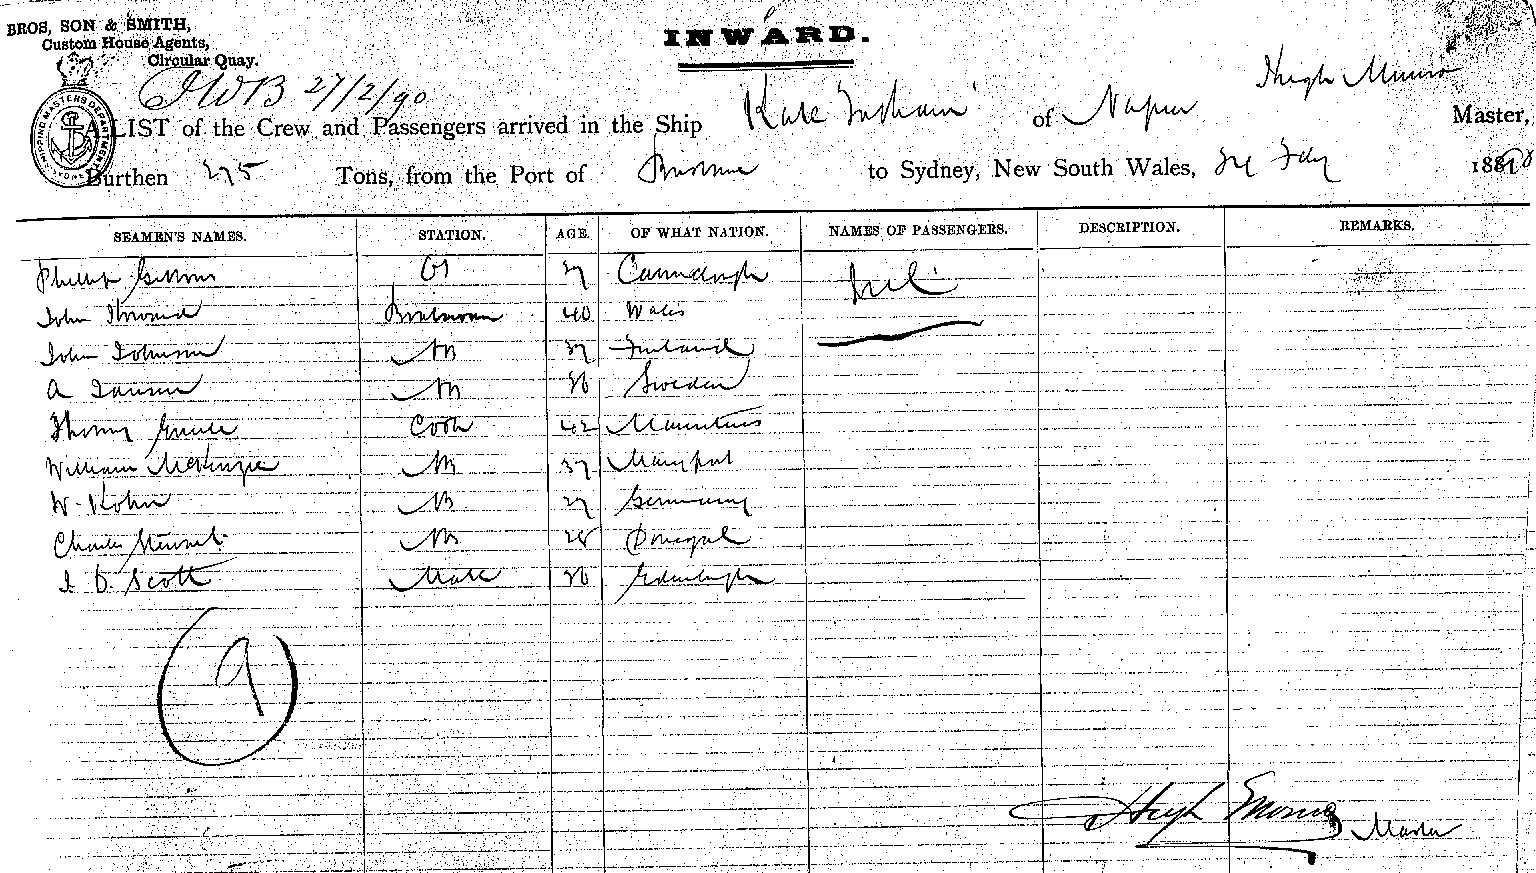 BROS, SON & SMITH,
Custom House Agents,
Circular Quay.
INWARD.
27/2/90
Hugh Munro
A LIST of the Crew and Passengers arrived in the Ship Kate of Napier Master,
Burthen 275 Tons, from the Port of Brisbane to Sydney, New South Wales, 188
SHIPPING MASTERS DEPARTMENT SYDNEY
SEAMEN'S NAMES. STATION. AGE. OF WHAT NATION. NAMES OF PASSENGERS. DESCRIPTION. REMARKS.
37
John Boatswain 40 Wales
John Johnson AB 37 Finland
A AB 36 Sweden
Thomas Cook 42 Mauritius
William McKenzie AB 37 Maryport
W. Kohn AB 27 Germany
Charles Stewart AB 28 Donegal
J. D. Scott Mate 36 Edinburgh
9
Hugh Munro Master